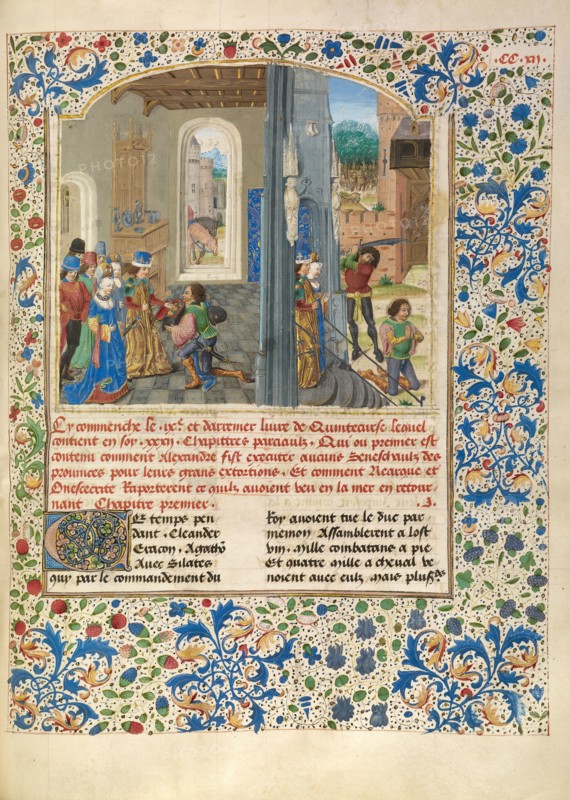 .CC.xij.
Cy commenche le .ixe. et darremer livre de Quintecurse lequel
contient en soy .xxxiij. Chapittres parciaulz. Qui ou premier est
contenu comment Alexandre fist executer aucuns Seneschaulz des
provinces pour leurs grans extortions. Et comment Nearque et
Onesecrite Raporterent ce quilz avoient veu en la mer en retour
nant Chapitre premier. .3.
CE temps pen
dant. Cleander
Eracon. Agatho
Avec Silates
quy par le commandement du
Roy avoient tue le duc par
menion Assamblerent a lost
Vm. mille combatans a pie
Et quatre mille a cheval ve
noient avec eulz, Mais plusrs
PHOTO12